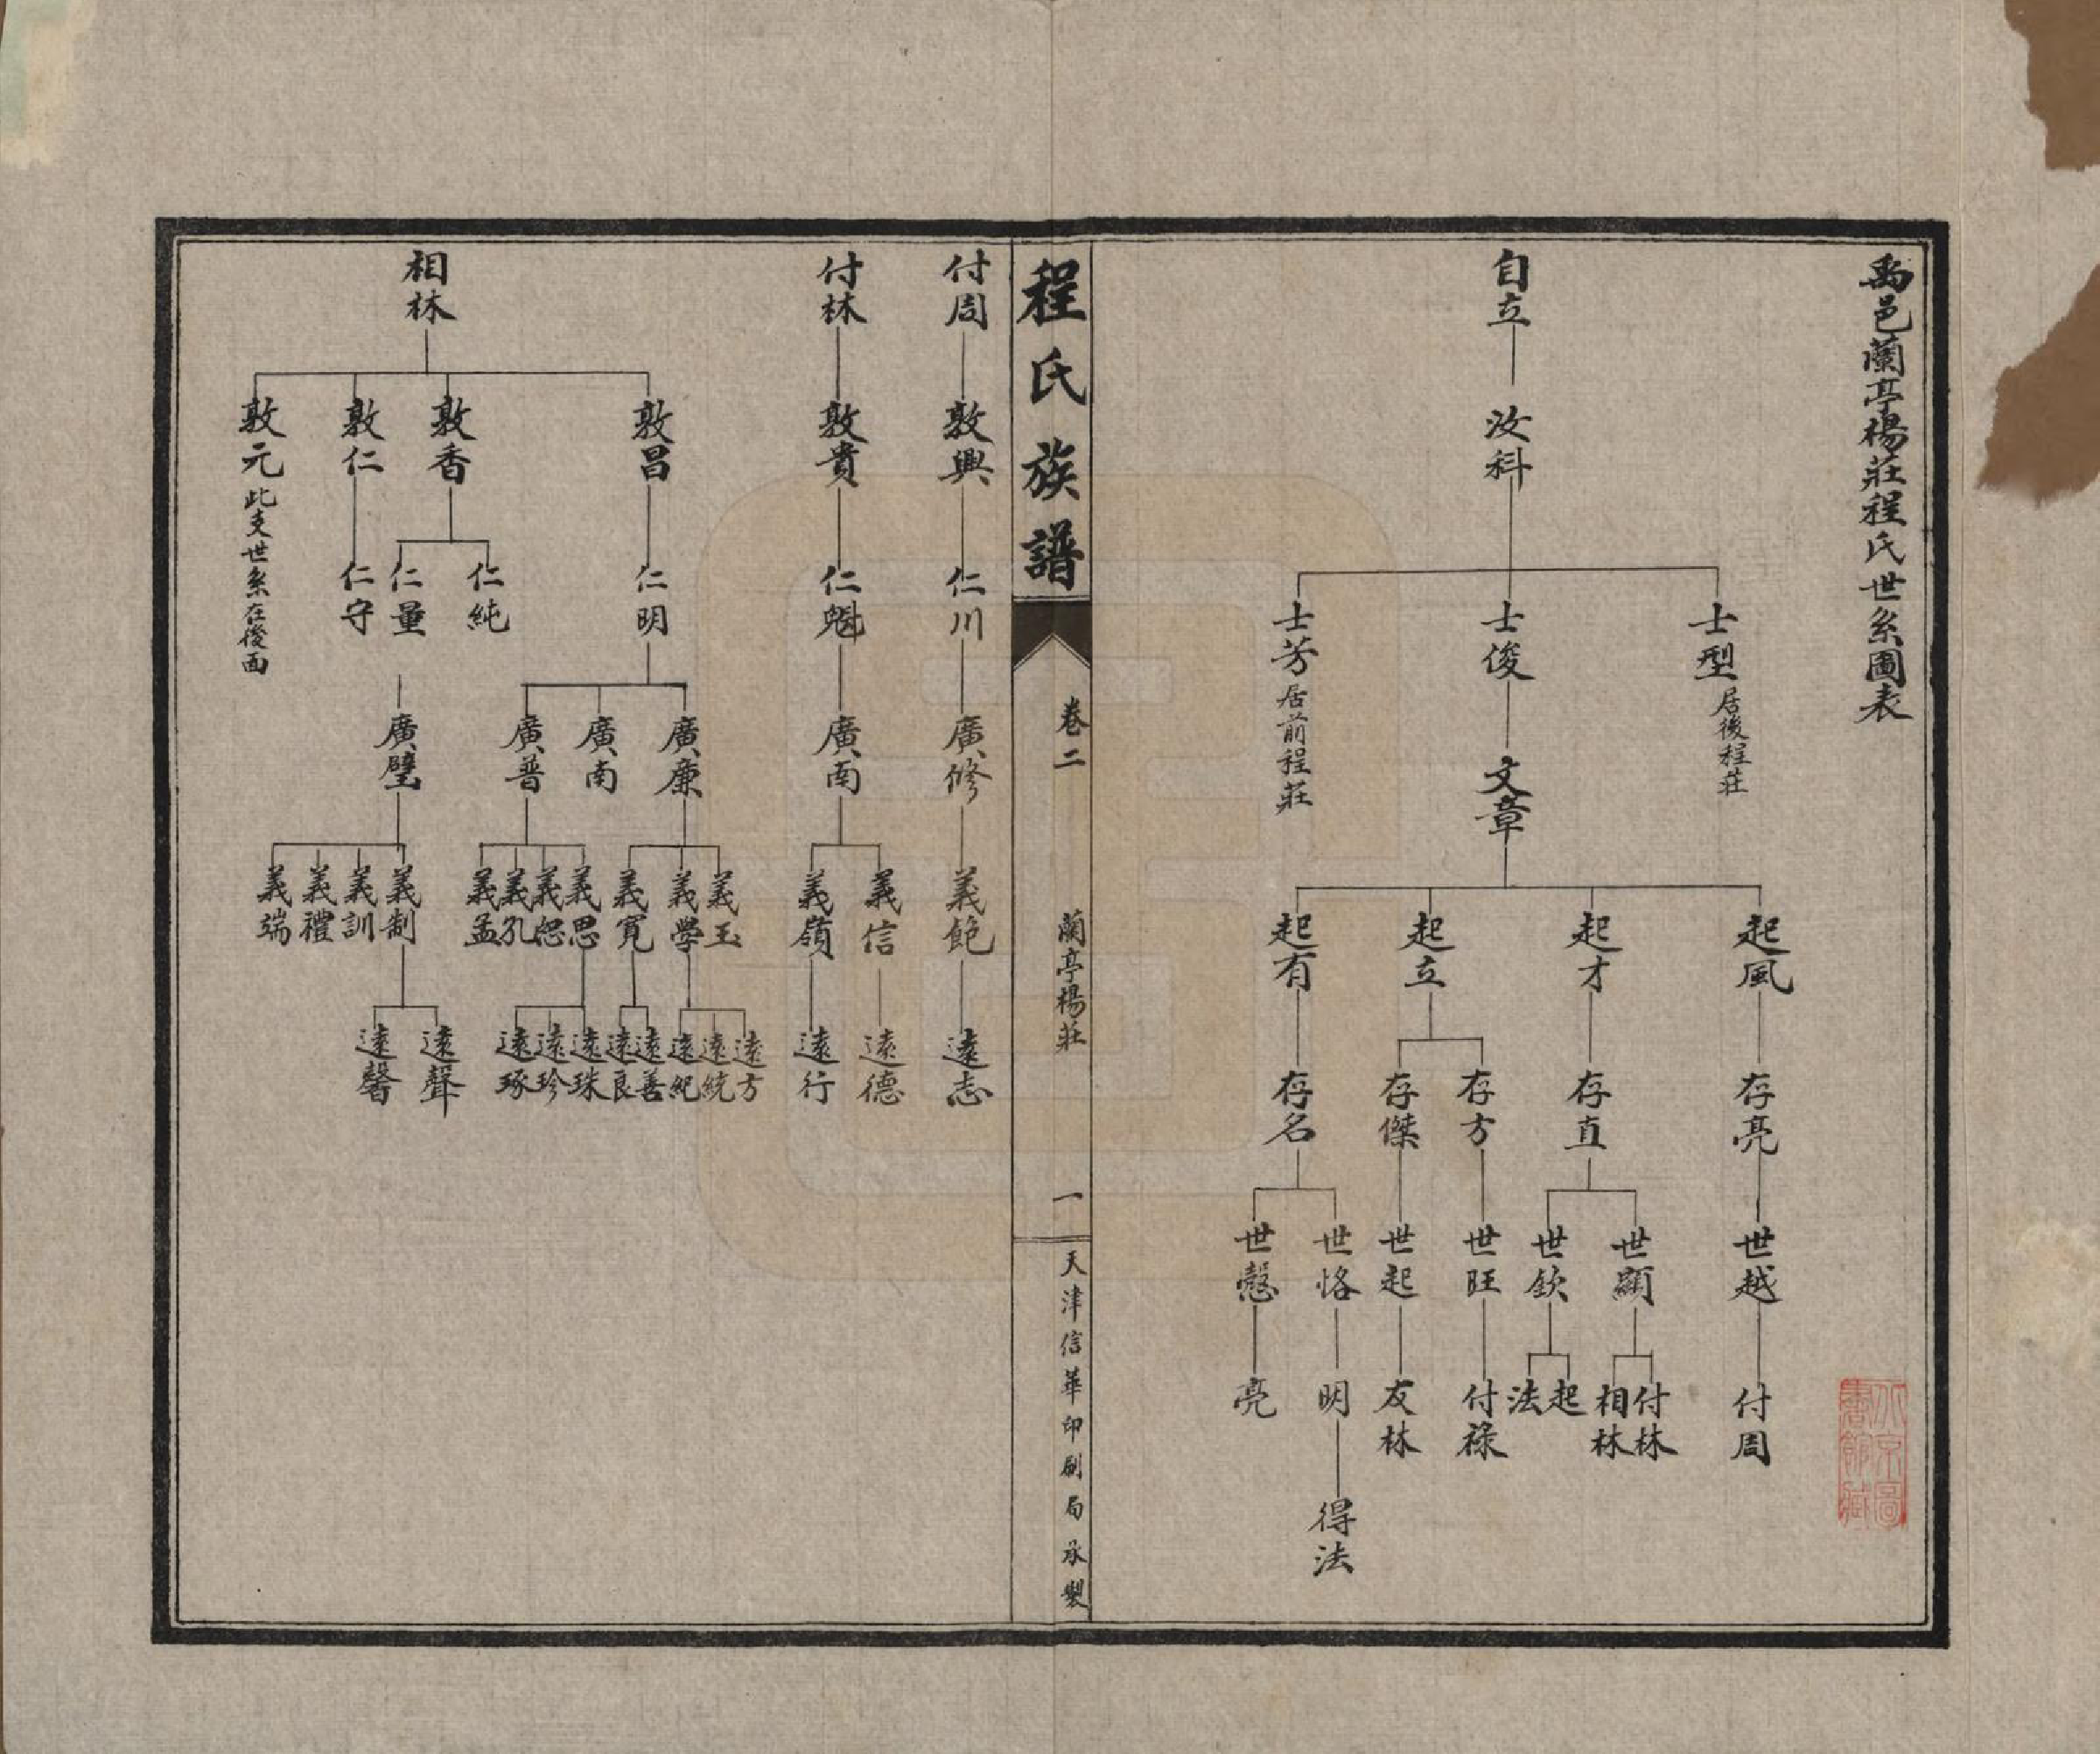 禹邑蘭亭楊莊程氏世系圖表
自立
汝科
士型 居後程莊
士俊
士芳 居前程莊
文章
起風
起才
起立
起有
存亮
存直
存方
存傑
存名
世越
世顯
世欽
世旺
世起
世恪
世慤
付周
付林
相林
起
法
付祿
友林
明
亮
得法
程氏族譜
卷二
蘭亭楊莊
一
天津信華印刷局承製
付周
敦興
仁川
廣修
義飽
遠志
付林
敦貴
仁魁
廣南
義信
義嶺
遠德
遠行
相林
敦昌
敦香
敦仁
敦元 此支世系在後面
仁明
仁純
仁量
仁守
廣廉
廣南
廣普
廣璧
義玉
義學
義寬
義思
義恕
義孔
義孟
義制
義訓
義禮
義端
遠方
遠統
遠紀
遠善
遠良
遠珠
遠珍
遠琢
遠聲
遠馨